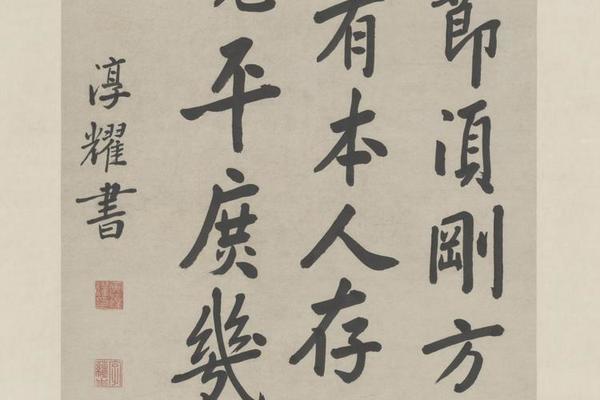 節須剛方
有本人存
平庶幾
淳耀書